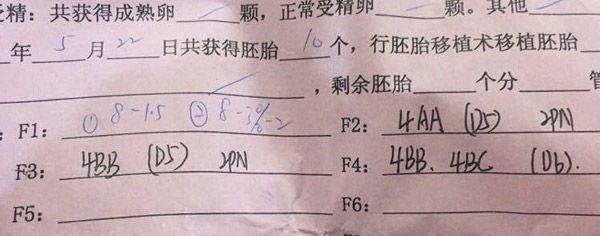 受精：共获得成熟卵 颗，正常受精卵 颗。其他
年5月22日共获得胚胎10个，行胚胎移植术移植胚胎
，剩余胚胎 个分 管
F1: ① 8-1.5 ② 8- -2 F2: 4AA (D5) 2PN
F3: 4BB (D5) 2PN F4: 4BB. 4BC (D6).
F5: F6: